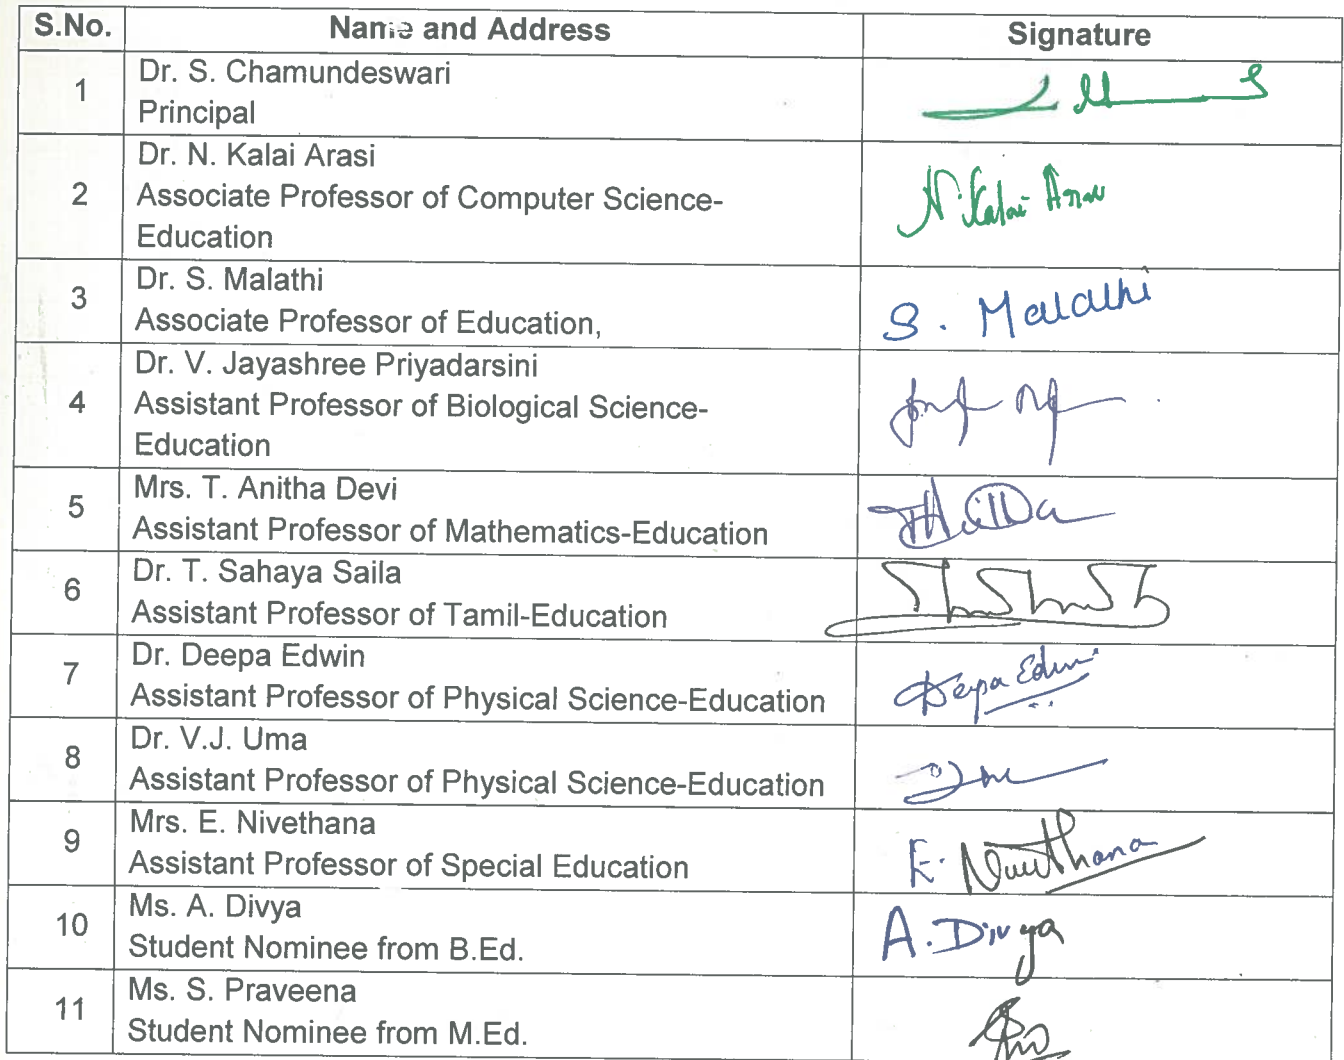 S.No. Name and Address Signature
1 Dr. S. Chamundeswari
Principal
2 Dr. N. Kalai Arasi
Associate Professor of Computer Science-
Education
N. Kalai Arasi
3 Dr. S. Malathi
Associate Professor of Education,
S. Malathi
4 Dr. V. Jayashree Priyadarsini
Assistant Professor of Biological Science-
Education
5 Mrs. T. Anitha Devi
Assistant Professor of Mathematics-Education
6 Dr. T. Sahaya Saila
Assistant Professor of Tamil-Education
7 Dr. Deepa Edwin
Assistant Professor of Physical Science-Education
Deepa Edwin
8 Dr. V.J. Uma
Assistant Professor of Physical Science-Education
9 Mrs. E. Nivethana
Assistant Professor of Special Education
E. Nivethana
10 Ms. A. Divya
Student Nominee from B.Ed.
A. Divya
11 Ms. S. Praveena
Student Nominee from M.Ed.